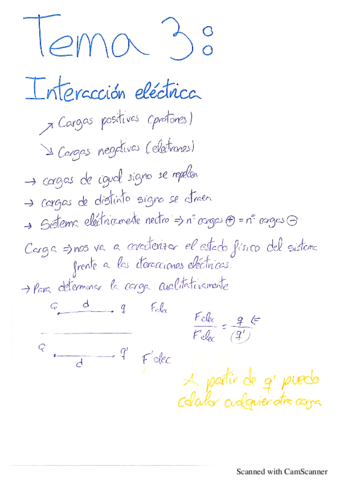 Tema 3:
Interacción eléctrica
↗ Cargas positivas (protones)
↘ Cargas negativas (electrones)
→ cargas de igual signo se repelen
→ cargas de distinto signo se atraen
→ Sistema eléctricamente neutro ⇒ nº cargas ⊕ = nº cargas ⊖
Carga ⇒ nos va a caracterizar el estado físico del sistema
frente a las iteracciones eléctricas.
→ Para determinar la carga cualitativamente
Q d q Felec
Felec / F'elec = q / (q') ←
Q d q' F'elec
A partir de q' puedo
calcular cualquier otra carga
Scanned with CamScanner